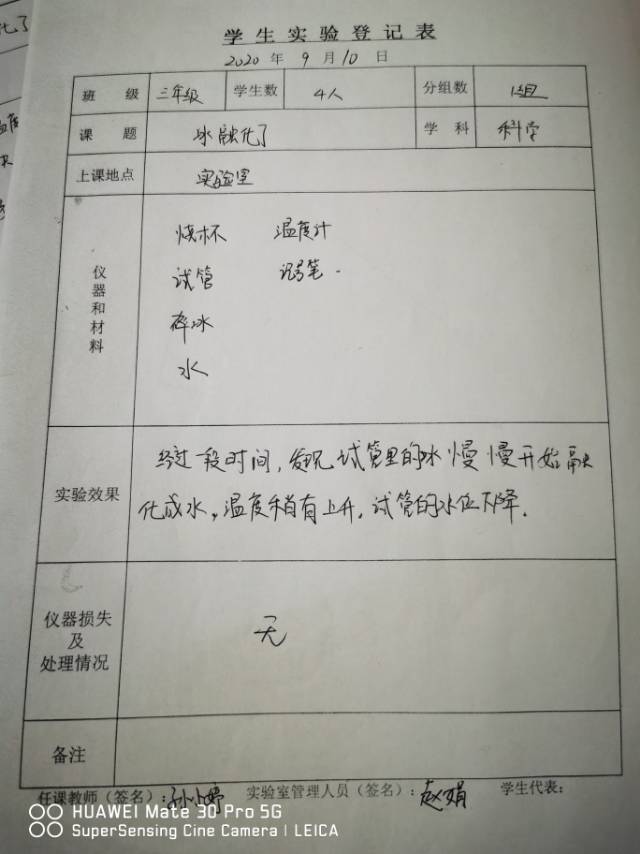 学生实验登记表
2020 年 9 月 10 日
班 级 三年级 学生数 4人 分组数 1组
课 题 冰融化了 学 科 科学
上课地点 实验室
仪器和材料
烧杯 温度计
试管 记号笔.
碎冰
水
实验效果
经过一段时间,发现试管里的冰慢慢开始融
化成水,温度稍有上升,试管的水位下降.
仪器损失
及
处理情况
无
备注
任课教师(签名):孙小婷 实验室管理人员(签名):赵娟 学生代表:
HUAWEI Mate 30 Pro 5G
SuperSensing Cine Camera | LEICA